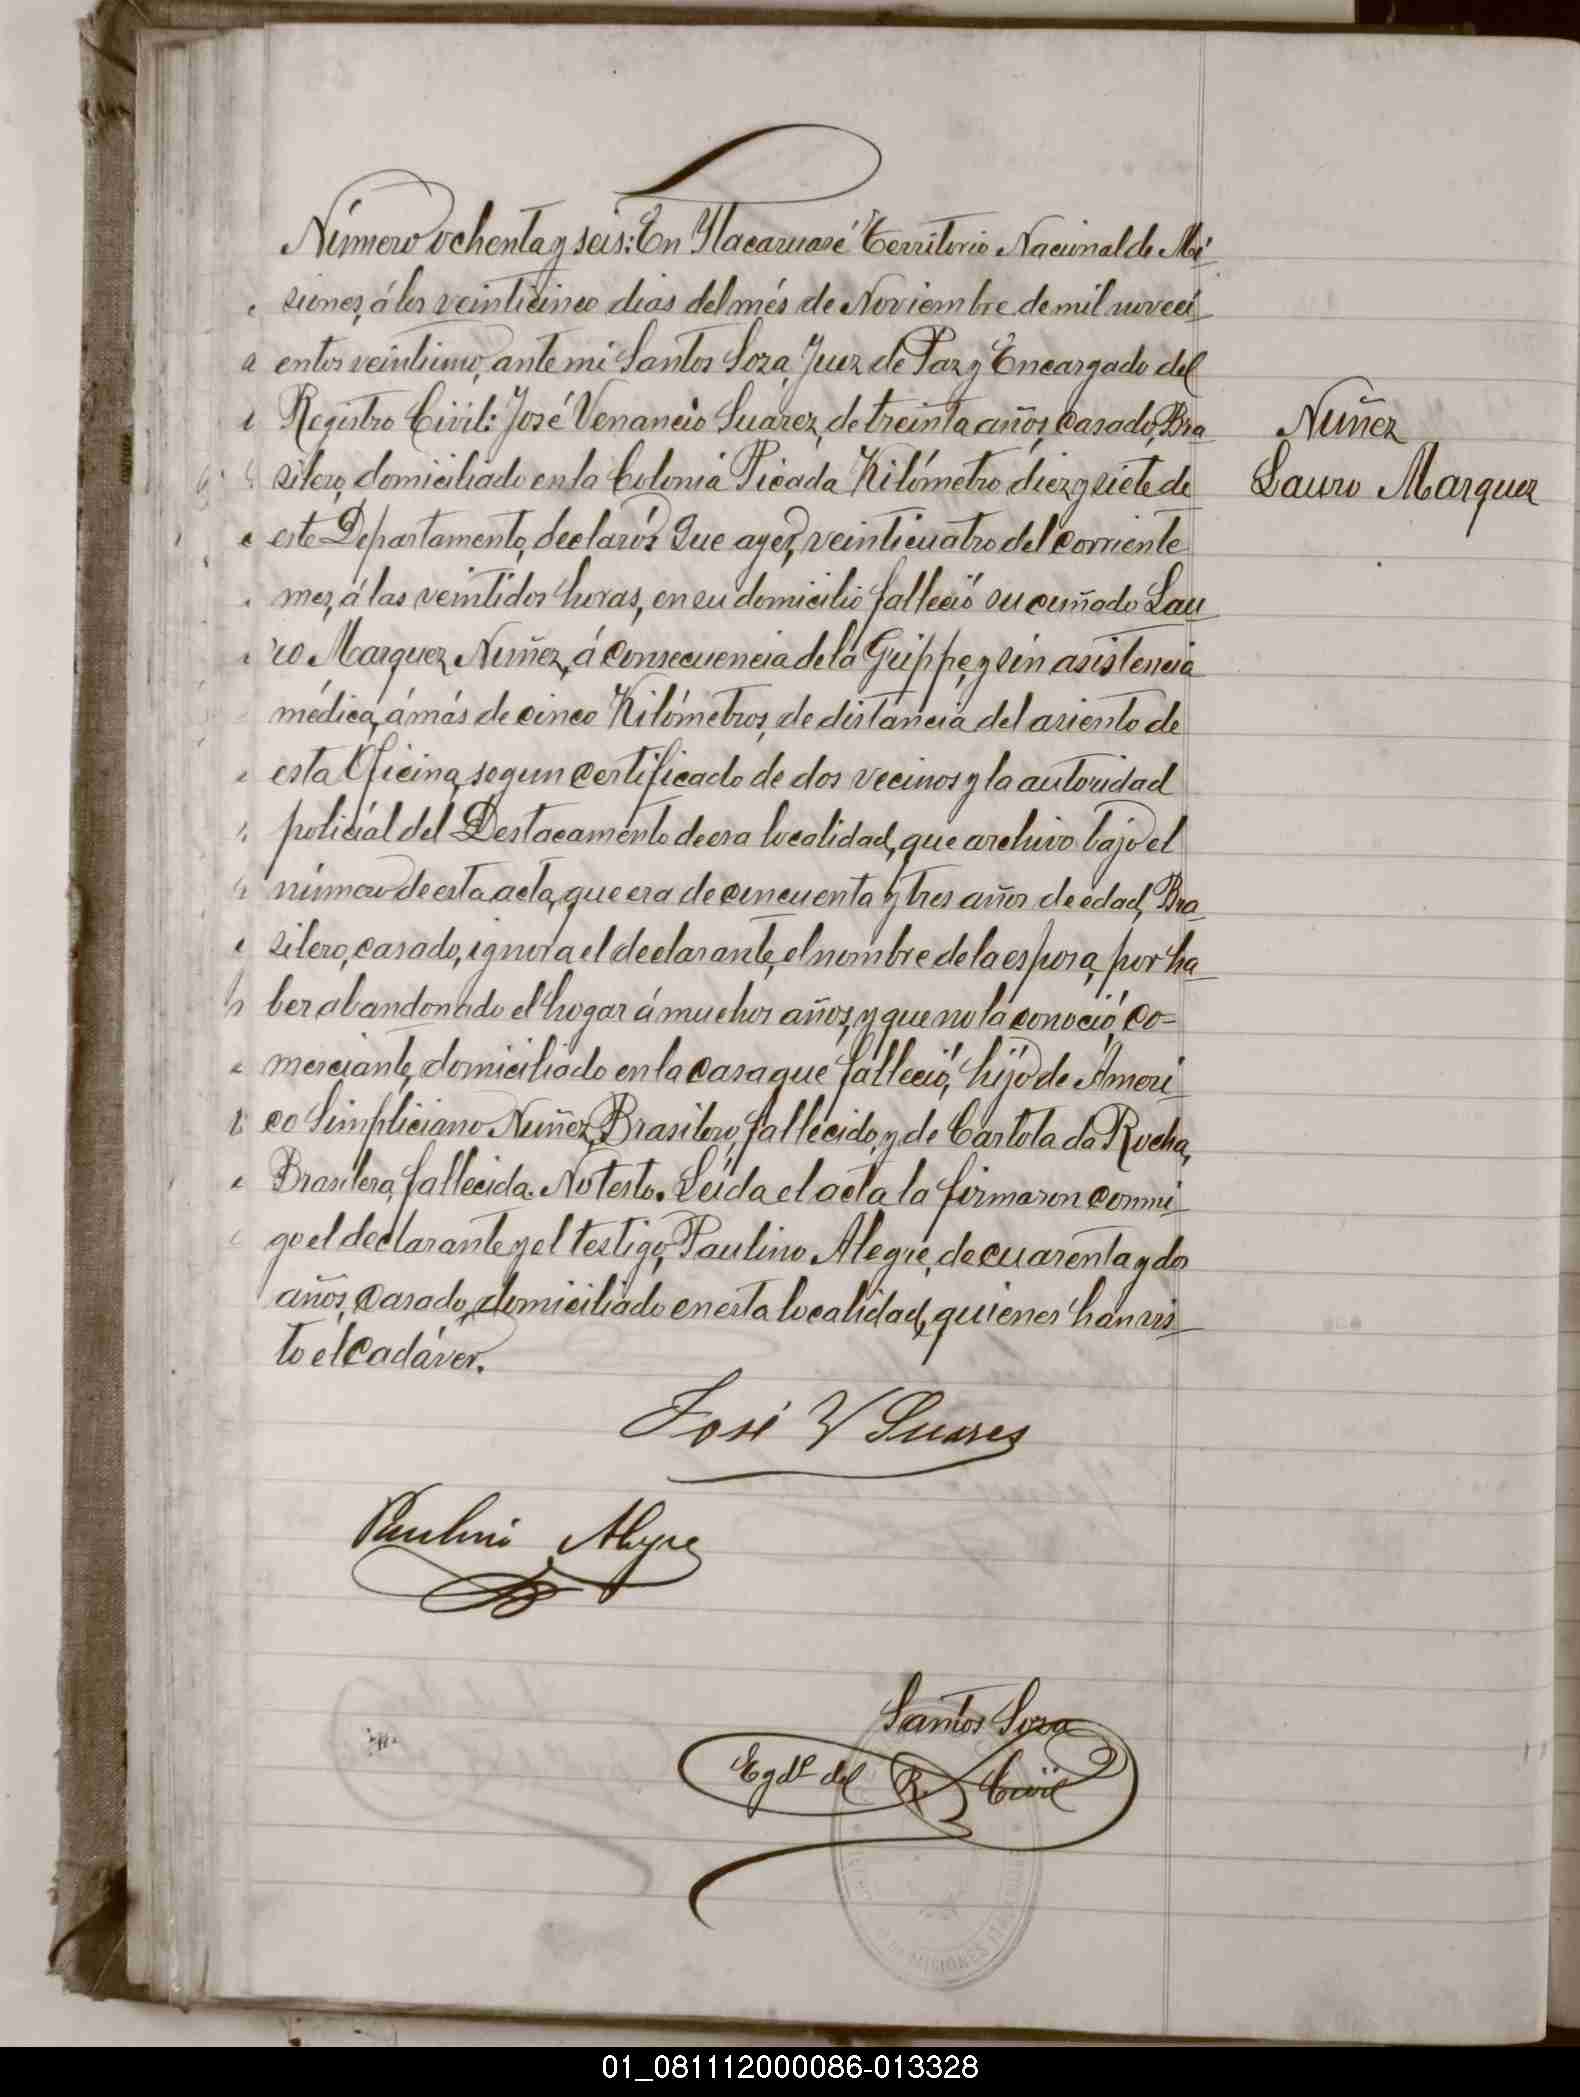 Número ochenta y seis: En Ytacaruaré Territorio Nacional de Mi-
siones, á los veinticinco dias del més de Noviembre de mil noveci-
entos veintiuno, ante mi Santos Soza, Juez de Paz y Encargado del
Registro Civil: José Venancio Suarez, de treinta años, casado, Bra-
silero, domiciliado en la Colonia Picada Kilómetro diez y siete de
este Departamento, declaró: Que ayer, veinticuatro del corriente
Nuñez
Lauro Marquez
mes, á las veintidos horas, en su domicilio falleció su cuñado Lau-
ro Marquez Nuñez, á consecuencia de la Grippe, y sin asistencia
médica, á más de cinco Kilómetros, de distancia del asiento de
esta Oficina, segun certificado de dos vecinos y la autoridad
policial del Destacamento de esa localidad, que archivo bajo el
número de esta acta, que era de cincuenta y tres años de edad, Bra-
silero, casado, ignora el declarante, el nombre de la esposa, por ha-
ber abandonado el hogar á muchos años, y que no la conoció, co-
merciante, domiciliado en la casa que falleció, hijo de Ameri-
co Simpliciano Nuñez, Brasilero, fallecido, y de Carlota da Rocha,
Brasilera, fallecida. No testo. Leida el acta la firmaron conmi-
go el declarante y el testigo, Paulino Alegre, de cuarenta y dos
años, casado, domiciliado en esta localidad, quienes han vis-
to el cadáver.
José V Suares
Paulino Alegre
Santos Soza
Egdo del R. Civil
MISIONES
01_081112000086-013328